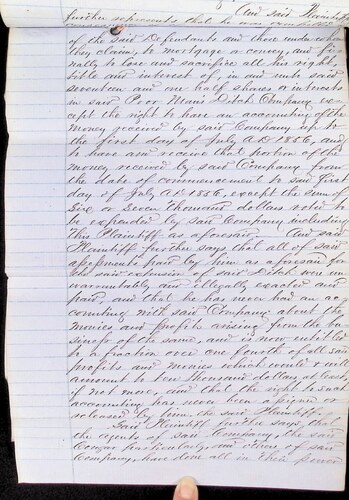 And said Plaintiff
further represents that he
of the said Defendants and those under whom
they claim, to mortgage or convey, and fi-
nally to lose and sacrifice all his right,
title and interest of, in and unto said
seventeen and one half shares or interests
in said Poor Man's Ditch Company ex-
cept the right to have an accounting of the
money received by said Company up to
the first day of July A.D. 1856, and
to have and receive his portion of the
money received by said Company from
the date of commencement to said first
day of July A.D. 1856, except the sum of
Six or Seven thousand dollars voted to
be expended by said Company including
this Plaintiff as aforesaid. And said
Plaintiff further says that all of said
assessments paid by him as aforesaid for
the said extension of said Ditch were un-
warrantably and illegally exacted and
paid, and that he has never had an ac-
counting with said Company about the
monies and profits arising from the bu-
siness of the same, and is now entitled
to a fraction over one fourth of all said
profits and monies which would or will
amount to ten thousand dollars at least
if not more, and that the right to such
accounting has never been assigned or
released by him, the said Plaintiff.
Said Plaintiff further says, that
the agents of said Company, the said
particularly, and of said
Company, have done all in their power